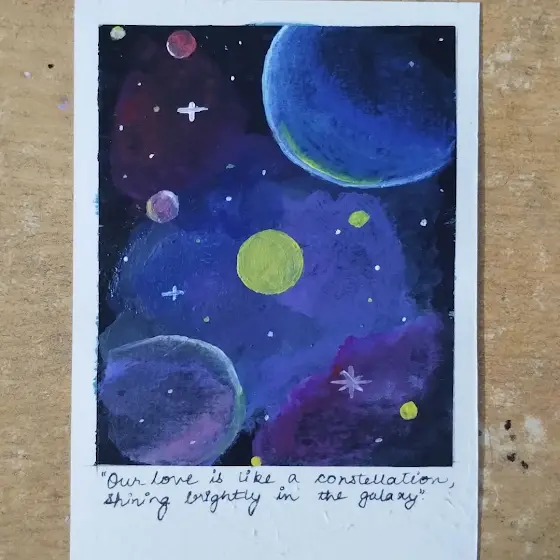 "Our love is like a constellation,
shining brightly in the galaxy"